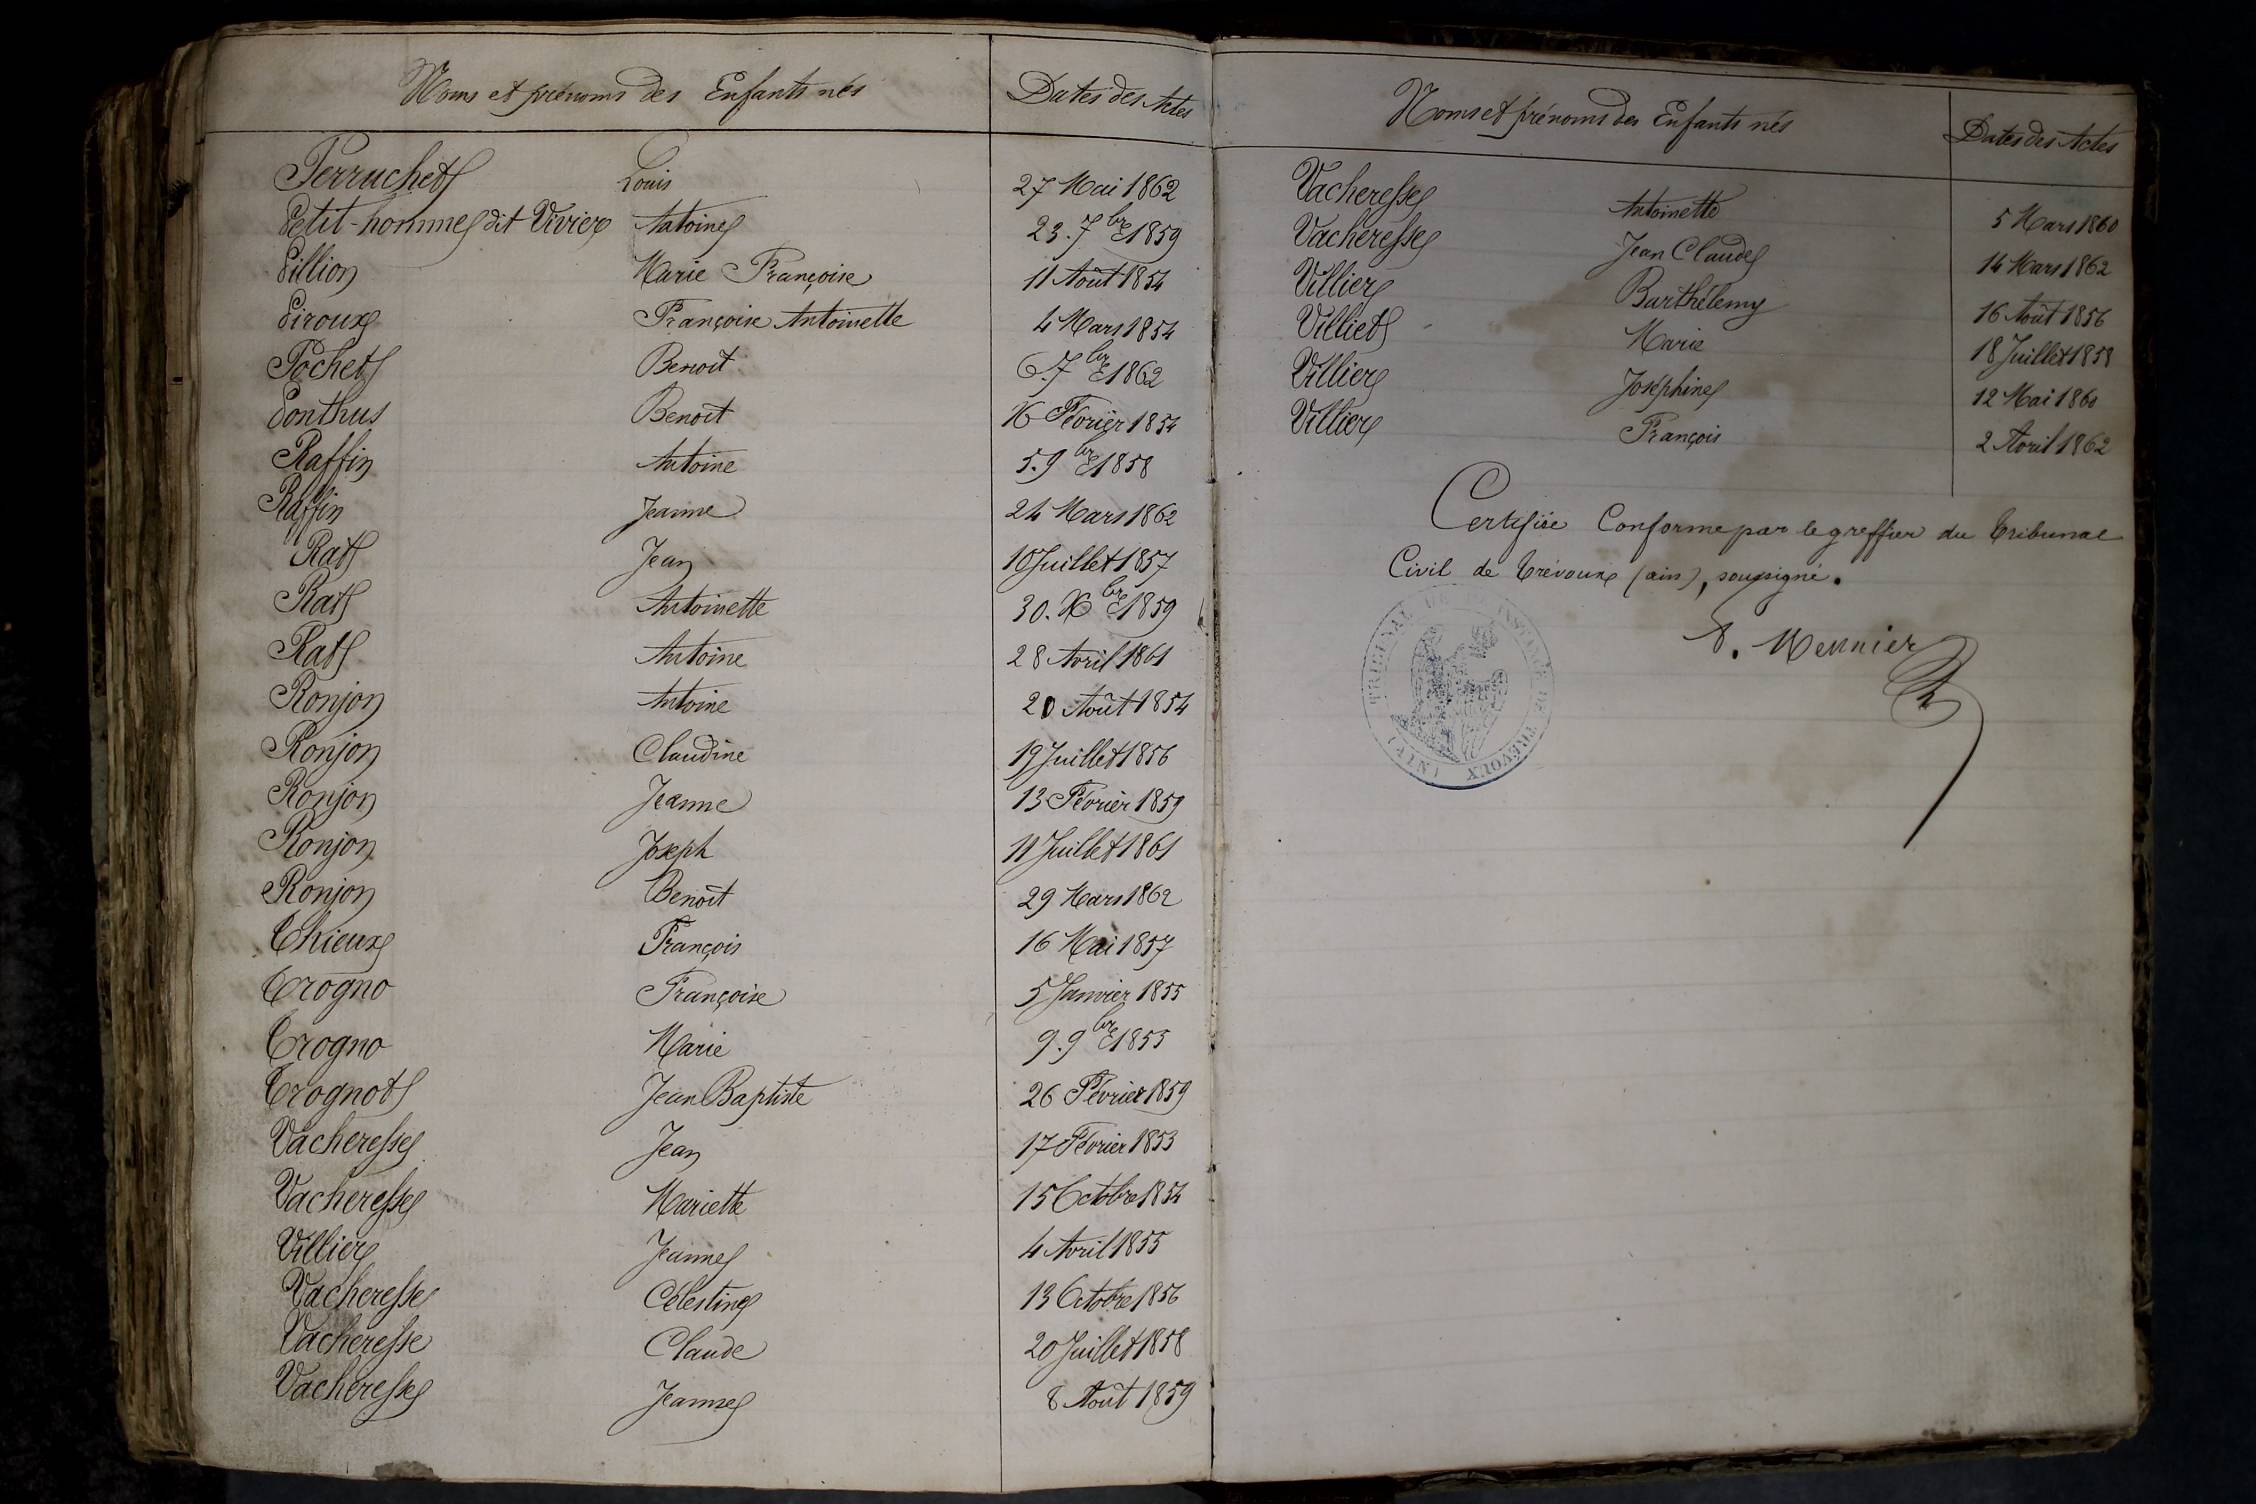 Noms et prénoms des Enfants nés Dates des Actes
Perruchet Louis 27 Mai 1862
Petit-homme dit Vivier Antoine 23. 7bre 1859
Pillion Marie Françoise 11 Août 1854
Piroux Françoise Antoinette 4 Mars 1854
Pochet Benoit 6. 7bre 1862
Ponthus Benoît 16 Février 1854
Raffin Antoine 5. 9bre 1858
Raffin Jeanne 24 Mars 1862
Rat Jean 10 Juillet 1857
Rat Antoinette 30. Xbre 1859
Rat Antoine 28 Avril 1861
Ronjon Antoine 20 Août 1854
Ronjon Claudine 19 Juillet 1856
Ronjon Jeanne 13 Février 1859
Ronjon Joseph 11 Juillet 1861
Ronjon Benoît 29 Mars 1862
Thieux François 16 Mai 1857
Trogno Françoise 5 Janvier 1855
Trogno Marie 9. 9bre 1855
Trognot Jean Baptiste 26 Février 1859
Vacheresse Jean 17 Février 1853
Vacheresse Mariette 15 Octobre 1854
Villier Jeanne 4 Avril 1855
Vacheresse Célestine 13 Octobre 1856
Vacheresse Claude 20 Juillet 1858
Vacheresse Jeanne 8 Août 1859
Noms et prénoms des Enfants nés Dates des Actes
Vacheresse Antoinette 5 Mars 1860
Vacheresse Jean Claude 14 Mars 1862
Villier Barthélemy 16 Août 1856
Villiet Marie 18 Juillet 1858
Villier Joséphine 12 Mai 1860
Villier François 2 Avril 1862
Certifiée Conforme par le greffier du Tribunal
Civil de Trévoux (ain), soussigné.
Meunier
TRIBUNAL DE INSTANCE DE TRÉVOUX (AIN)